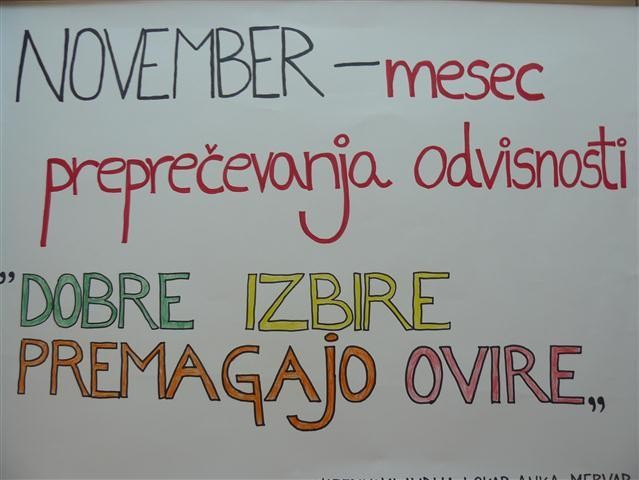 NOVEMBER – mesec
preprečevanja odvisnosti
"DOBRE IZBIRE
PREMAGAJO OVIRE„
ANKA MERVAR